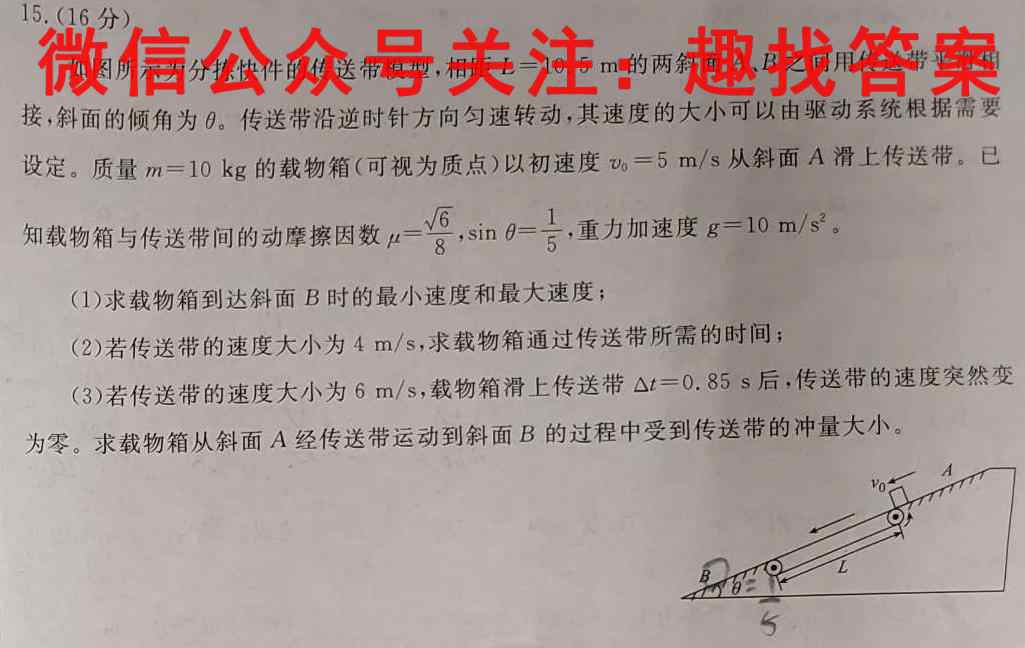 15.(16分)
微信公众号关注：趣找答案
如图所示为分拣快件的传送带模型,相距L=10.5 m的两斜面A、B之间用传送带平滑相
接,斜面的倾角为θ。传送带沿逆时针方向匀速转动,其速度的大小可以由驱动系统根据需要
设定。质量m=10 kg的载物箱(可视为质点)以初速度v₀=5 m/s从斜面A滑上传送带。已
知载物箱与传送带间的动摩擦因数μ=√6/8,sin θ=1/5,重力加速度g=10 m/s²。
(1)求载物箱到达斜面B时的最小速度和最大速度;
(2)若传送带的速度大小为4 m/s,求载物箱通过传送带所需的时间;
(3)若传送带的速度大小为6 m/s,载物箱滑上传送带Δt=0.85 s后,传送带的速度突然变
为零。求载物箱从斜面A经传送带运动到斜面B的过程中受到传送带的冲量大小。
A
v₀
L
B
θ
=1/5